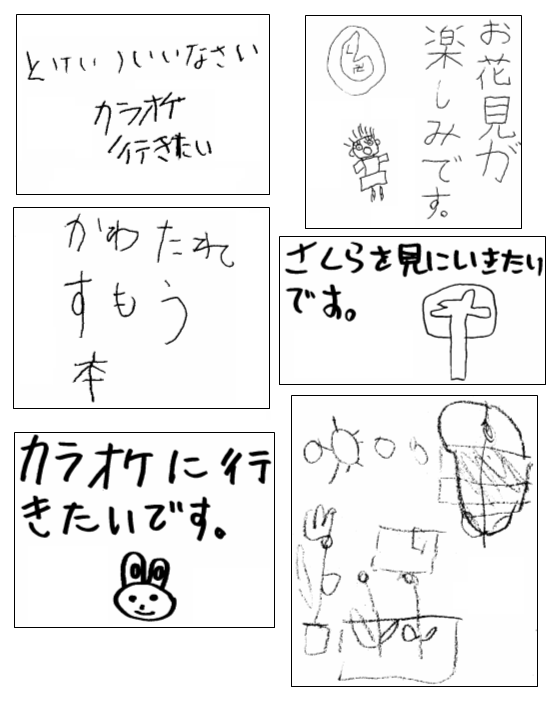 とけいういいなさい
カラオケ
行きたい
お花見が
楽しみです。
かわたれ
すもう
本
さくらを見にいきたい
です。
カラオケに行
きたいです。